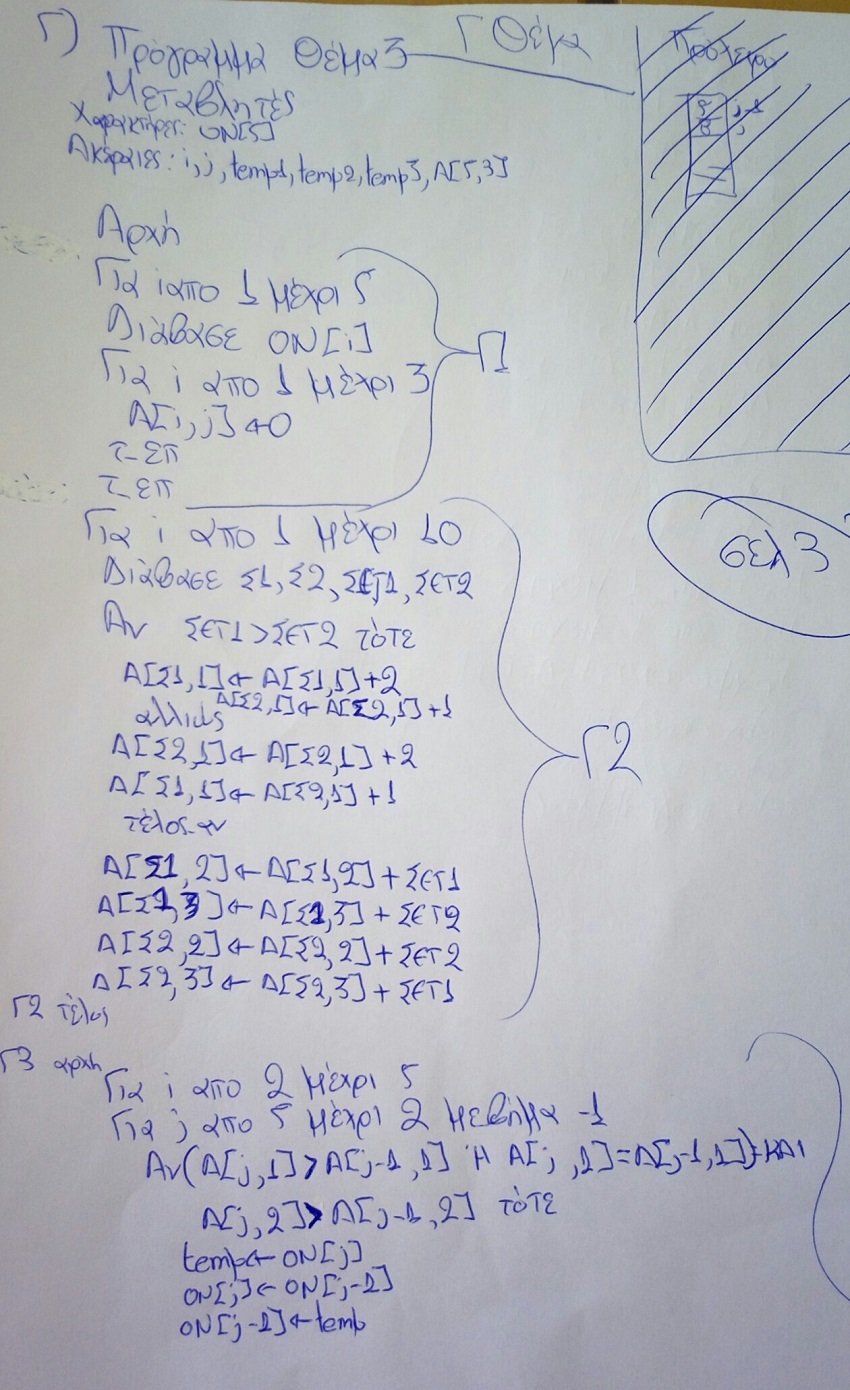 Γ) Πρόγραμμα Θέμα3 Γ Θέμα
Μεταβλητές
Χαρακτήρες: ON[5]
Ακέραιες: i, j, temp1, temp2, temp3, A[5,3]
Αρχή
Για i απο 1 μέχρι 5
Διάβασε ON[i]
Για i απο 1 μέχρι 3
A[i,j] ← 0
τ_επ
τ_επ
Γ1
Για i απο 1 μέχρι 10
Διάβασε Σ1, Σ2, ΣΕΤ1, ΣΕΤ2
Αν ΣΕΤ1 > ΣΕΤ2 τότε
A[Σ1,1] ← A[Σ1,1]+2
A[Σ2,1] ← A[Σ2,1]+1
αλλιώς
A[Σ2,1] ← A[Σ2,1]+2
A[Σ1,1] ← A[Σ2,1]+1
τέλος_αν
A[Σ1,2] ← A[Σ1,2]+ΣΕΤ1
A[Σ1,3] ← A[Σ1,3]+ΣΕΤ2
A[Σ2,2] ← A[Σ2,2]+ΣΕΤ2
A[Σ2,3] ← A[Σ2,3]+ΣΕΤ1
Γ2
Γ2 τέλος
Γ3 αρχή
Για i απο 2 μέχρι 5
Για j απο 5 μέχρι 2 με βήμα -1
Αν (A[j,1] > A[j-1,1] Ή A[j,1]=A[j-1,1]) ΚΑΙ
A[j,2] > A[j-1,2] τότε
temp ← ON[j]
ON[j] ← ON[j-1]
ON[j-1] ← temp
Πρόχειρο
5 j-1
8 j
σελ 3